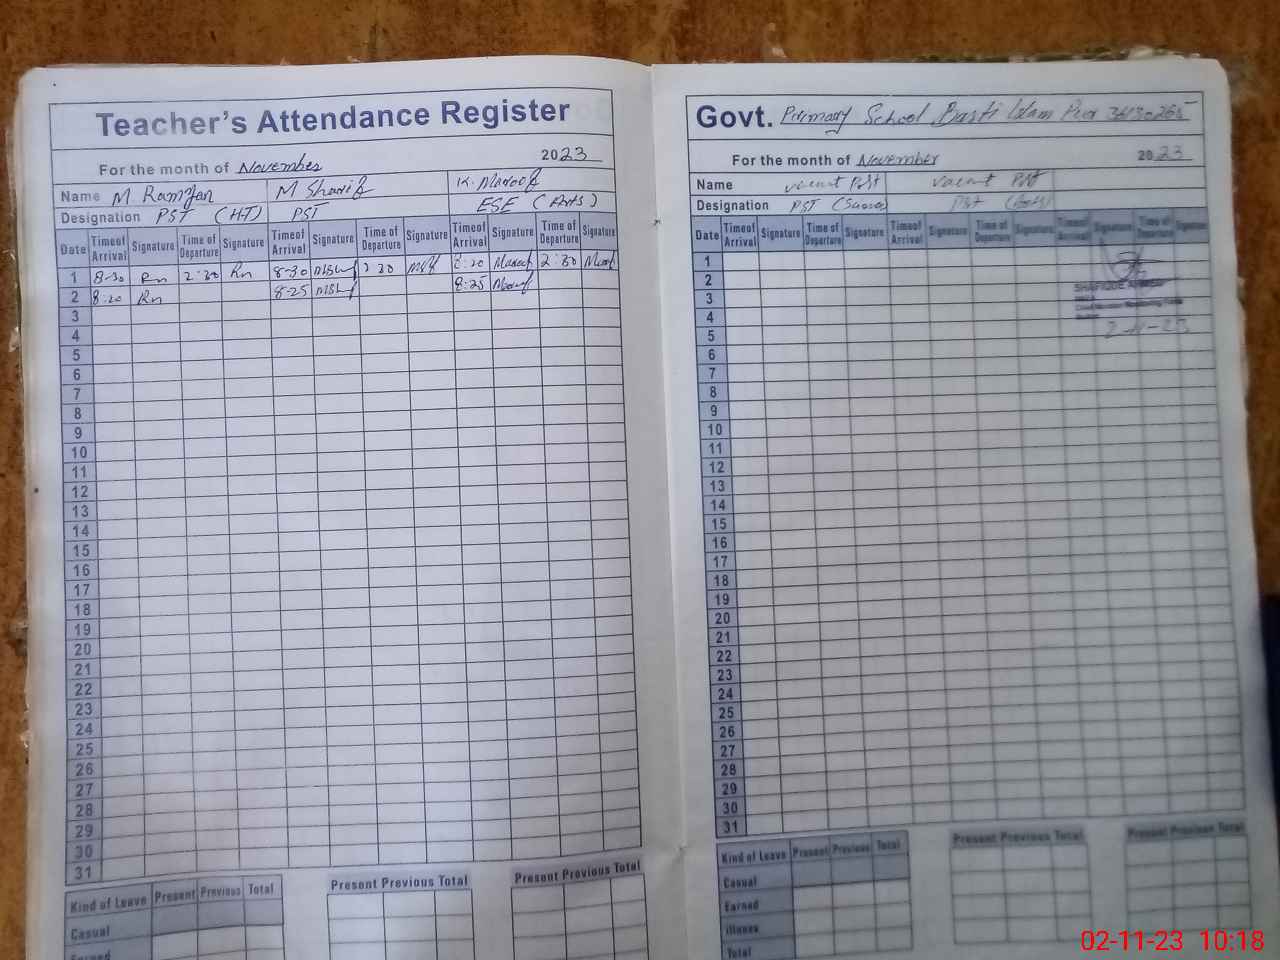 Teacher's Attendance Register
For the month of November 2023
Name M Ramzan M Sharif K. Maroof
Designation PST (H-T) PST ESE (Arts)
Date Time of Arrival Signature Time of Departure Signature Time of Arrival Signature Time of Departure Signature Time of Arrival Signature Time of Departure Signature
1 8-30 Rn 2:30 Rn 8-30 2:30
2 8:20 Rn 8-25 8:25
3
4
5
6
7
8
9
10
11
12
13
14
15
16
17
18
19
20
21
22
23
24
25
26
27
28
29
30
31
Kind of Leave Present Previous Total Present Previous Total Present Previous Total
Casual
Earned
Govt. Primary School Basti Islam
For the month of November 2023
Name vacant Post vacant Post
Designation PST PST
Date Time of Arrival Signature Time of Departure Signature Time of Arrival Signature Time of Departure Signature Time of Arrival Signature Time of Departure Signature
1
2
3
4
5
6
7
8
9
10
11
12
13
14
15
16
17
18
19
20
21
22
23
24
25
26
27
28
29
30
31
2-11-23
Kind of Leave Present Previous Total Present Previous Total Present Previous Total
Casual
Earned
illness
Total
02-11-23 10:18